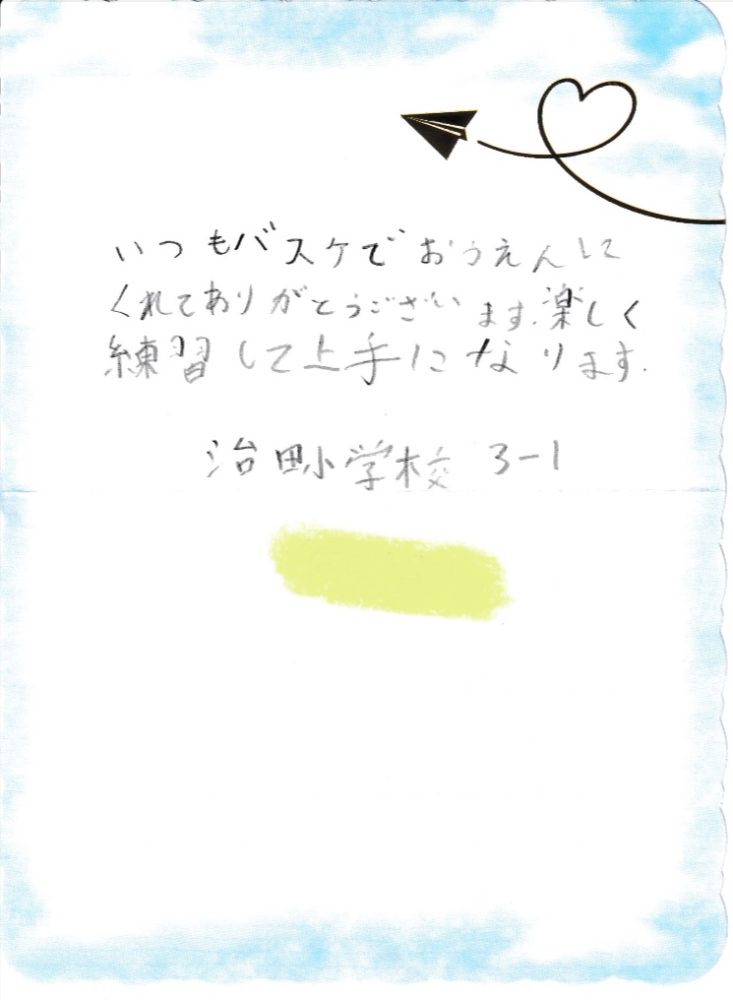 いつもバスケでおうえんして
くれてありがとうございます.楽しく
練習して上手になります.
治田小学校 3-1